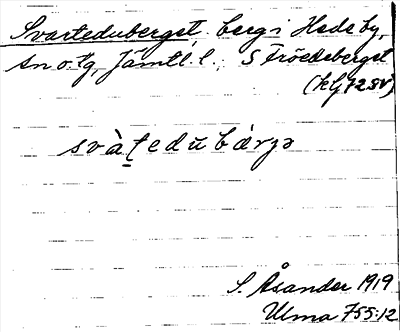 Svarteduberget. berg i Hede by,
sn o. tg, Jämtl. l., S Fröedeberget
(kbl 72 SV)
svàt̠edu̅bǽrjə
S. Åsander 1919
Ulma 755:12